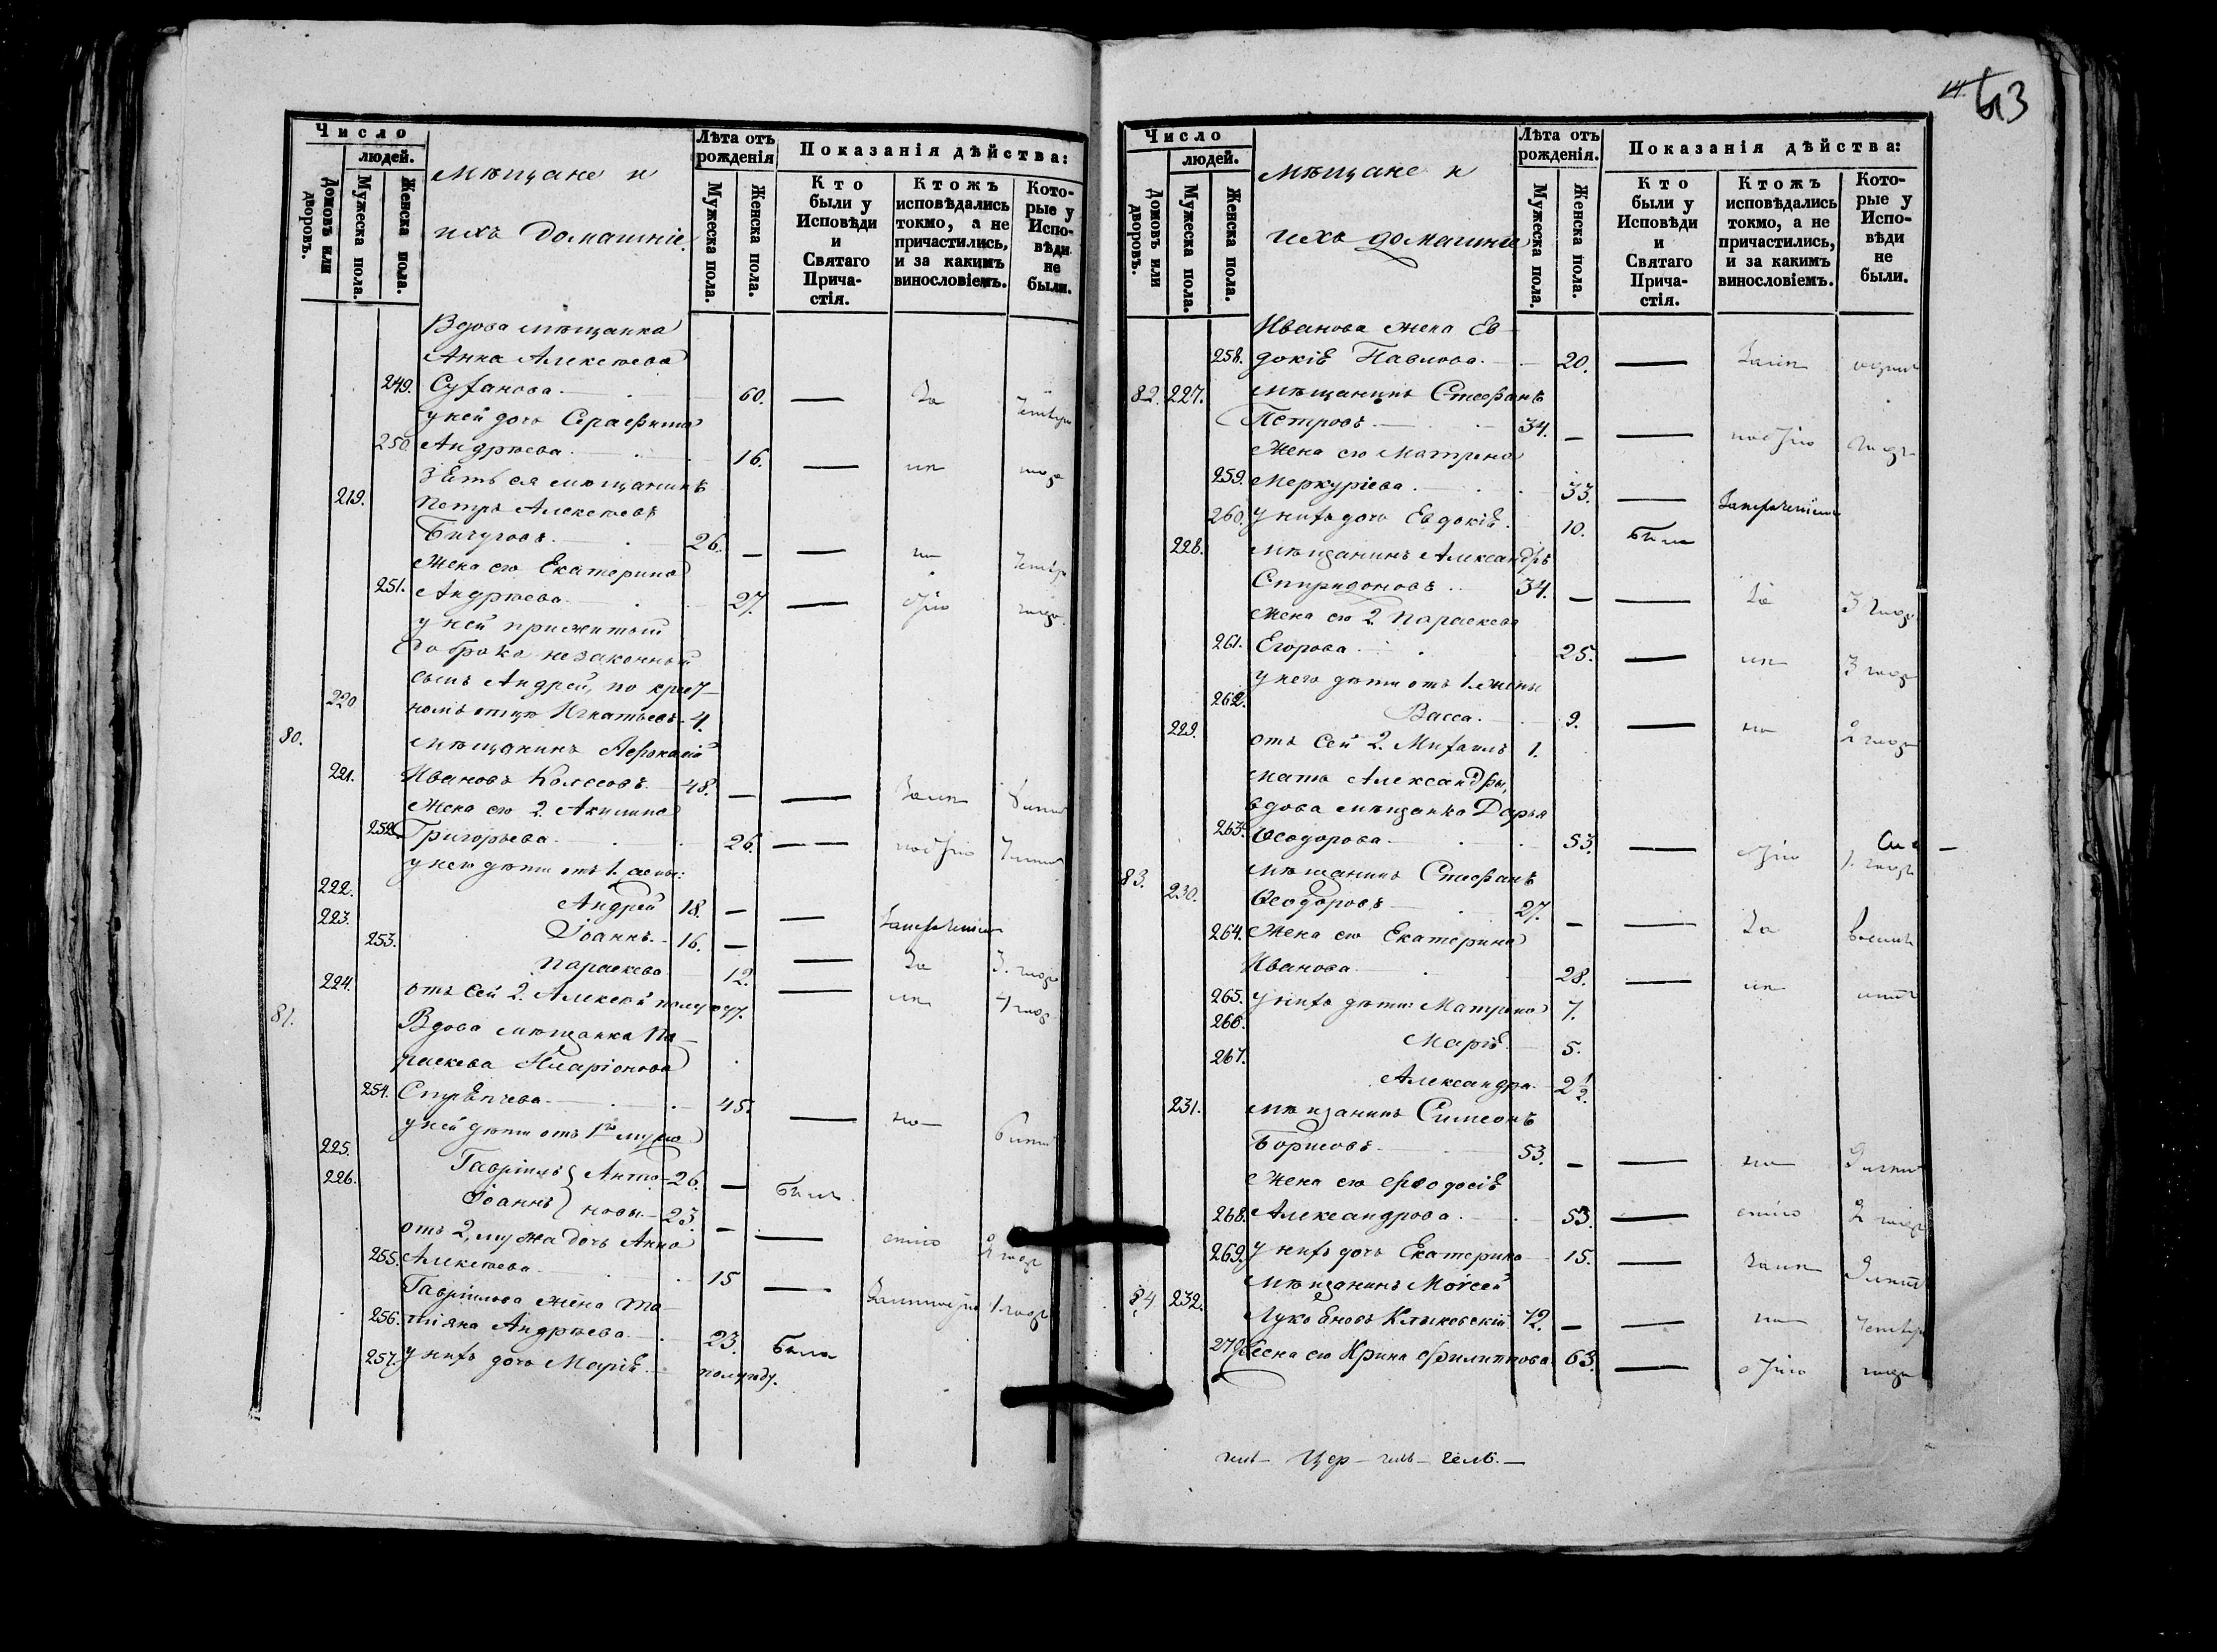 Число
людей.
Домовъ или дворовъ.
Мужеска пола.
Женска пола.
мѣщане и
ихъ домашніе.
Лѣта отъ рожденія
Мужеска пола.
Женска пола.
Показанія дѣйства:
Кто были у Исповѣди и Святаго Причастія.
Ктожъ исповѣдались токмо, а не причастились, и за какимъ винословіемъ.
Которые у Исповѣди не были.
Вдова мѣщанка
Анна Алексѣева
249. Суханова 60. — за четыре
у ней дочь Серафима
250. Андреева 16. — не года
зять ея мѣщанинъ
219. Петръ Алексѣевъ
26. — —
Жена его Екатерина
251. Андреева 27. —
у ней прижитый
до брака незаконный
сынъ Андрей, по крест-
220 номъ отцѣ Игнатьевъ 4.
80. мѣщанинъ
221. Ивановъ 48. — —
Жена его 2. Акилина
252. Григорьева 26. —
у него дѣти отъ 1. жены:
222. Андрей 18. — —
223. Іоаннъ 16. — —
253. Параскева 12. — 3. года
224. отъ сей 2. Алексѣй
81. Вдова мѣщанка Па-
раскева Иларіонова
254. 45. — 6 лѣтъ
у ней дѣти отъ 1го мужа
225. Гавріилъ Анто- 26. — Былъ
226. Іоаннъ новы 23. — — 2 года
отъ 2, мужа дочь Анна
255. Алексѣева 15 — 1 годъ
Гавріилова жена Та-
256. тіяна Андреева 23. Была
257. у нихъ дочь Марія полугоду.
14. 63
Число
людей.
Домовъ или дворовъ.
Мужеска пола.
Женска пола.
мѣщане и
ихъ домашніе
Лѣта отъ рожденія.
Мужеска пола.
Женска пола.
Показанія дѣйства:
Кто были у Исповѣди и Святаго Причастія.
Ктожъ исповѣдались токмо, а не причастились, и за какимъ винословіемъ.
Которые у Исповѣди не были.
Иванова жена Ев-
258. докія Павлова 20. —
82. 227. мѣщанинъ Стефанъ
Петровъ 34. — —
Жена его Матрона
259. Меркуріева 33. —
260. у нихъ дочь Евдокія 10. Была
228. мѣщанинъ Александръ
Спиридоновъ 34. — — за 3 года
Жена его 2 Параскева
261. Егорова 25. — не 3 года
у него дѣти отъ 1 жены
262. Васса 9. — не 2 года
229. отъ сей 2. Михаилъ 1.
мать Александры,
вдова мѣщанка Дарья
263. Ѳеодорова 53. —
83. 230. мѣщанинъ Стефанъ
Ѳеодоровъ 27. — — за восемь
264. Жена его Екатерина
Иванова 28. — не лѣтъ
265. у нихъ дѣти: Матрона 7.
266. Марія 5.
267. Александра 2 1/2.
231. мѣщанинъ Симеонъ
Борисовъ 53. — — не 9 лѣтъ
Жена его Ѳеодосія
268. Александрова 53. — 2 года
269. у нихъ дочь Екатерина 15. — 9 лѣтъ
84 232. мѣщанинъ Моѵсей
72. — — не четыре
270. Жена его Ирина Филиппова 63. — года